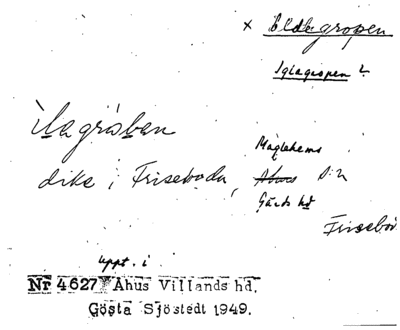 x Eldagropen
Iglagropen?
ìlagråban
dike i Friseboda, Maglehems
Åhus S:n
Gärds hd
Frisebod
uppt. i
Nr 4627 Åhus Villands hd.
Gösta Sjöstedt 1949.